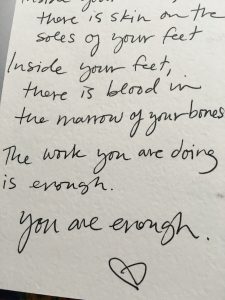 Inside your
there is skin on the
soles of your feet
Inside your feet,
there is blood in
the marrow of your bones
The work you are doing
is enough.
you are enough.